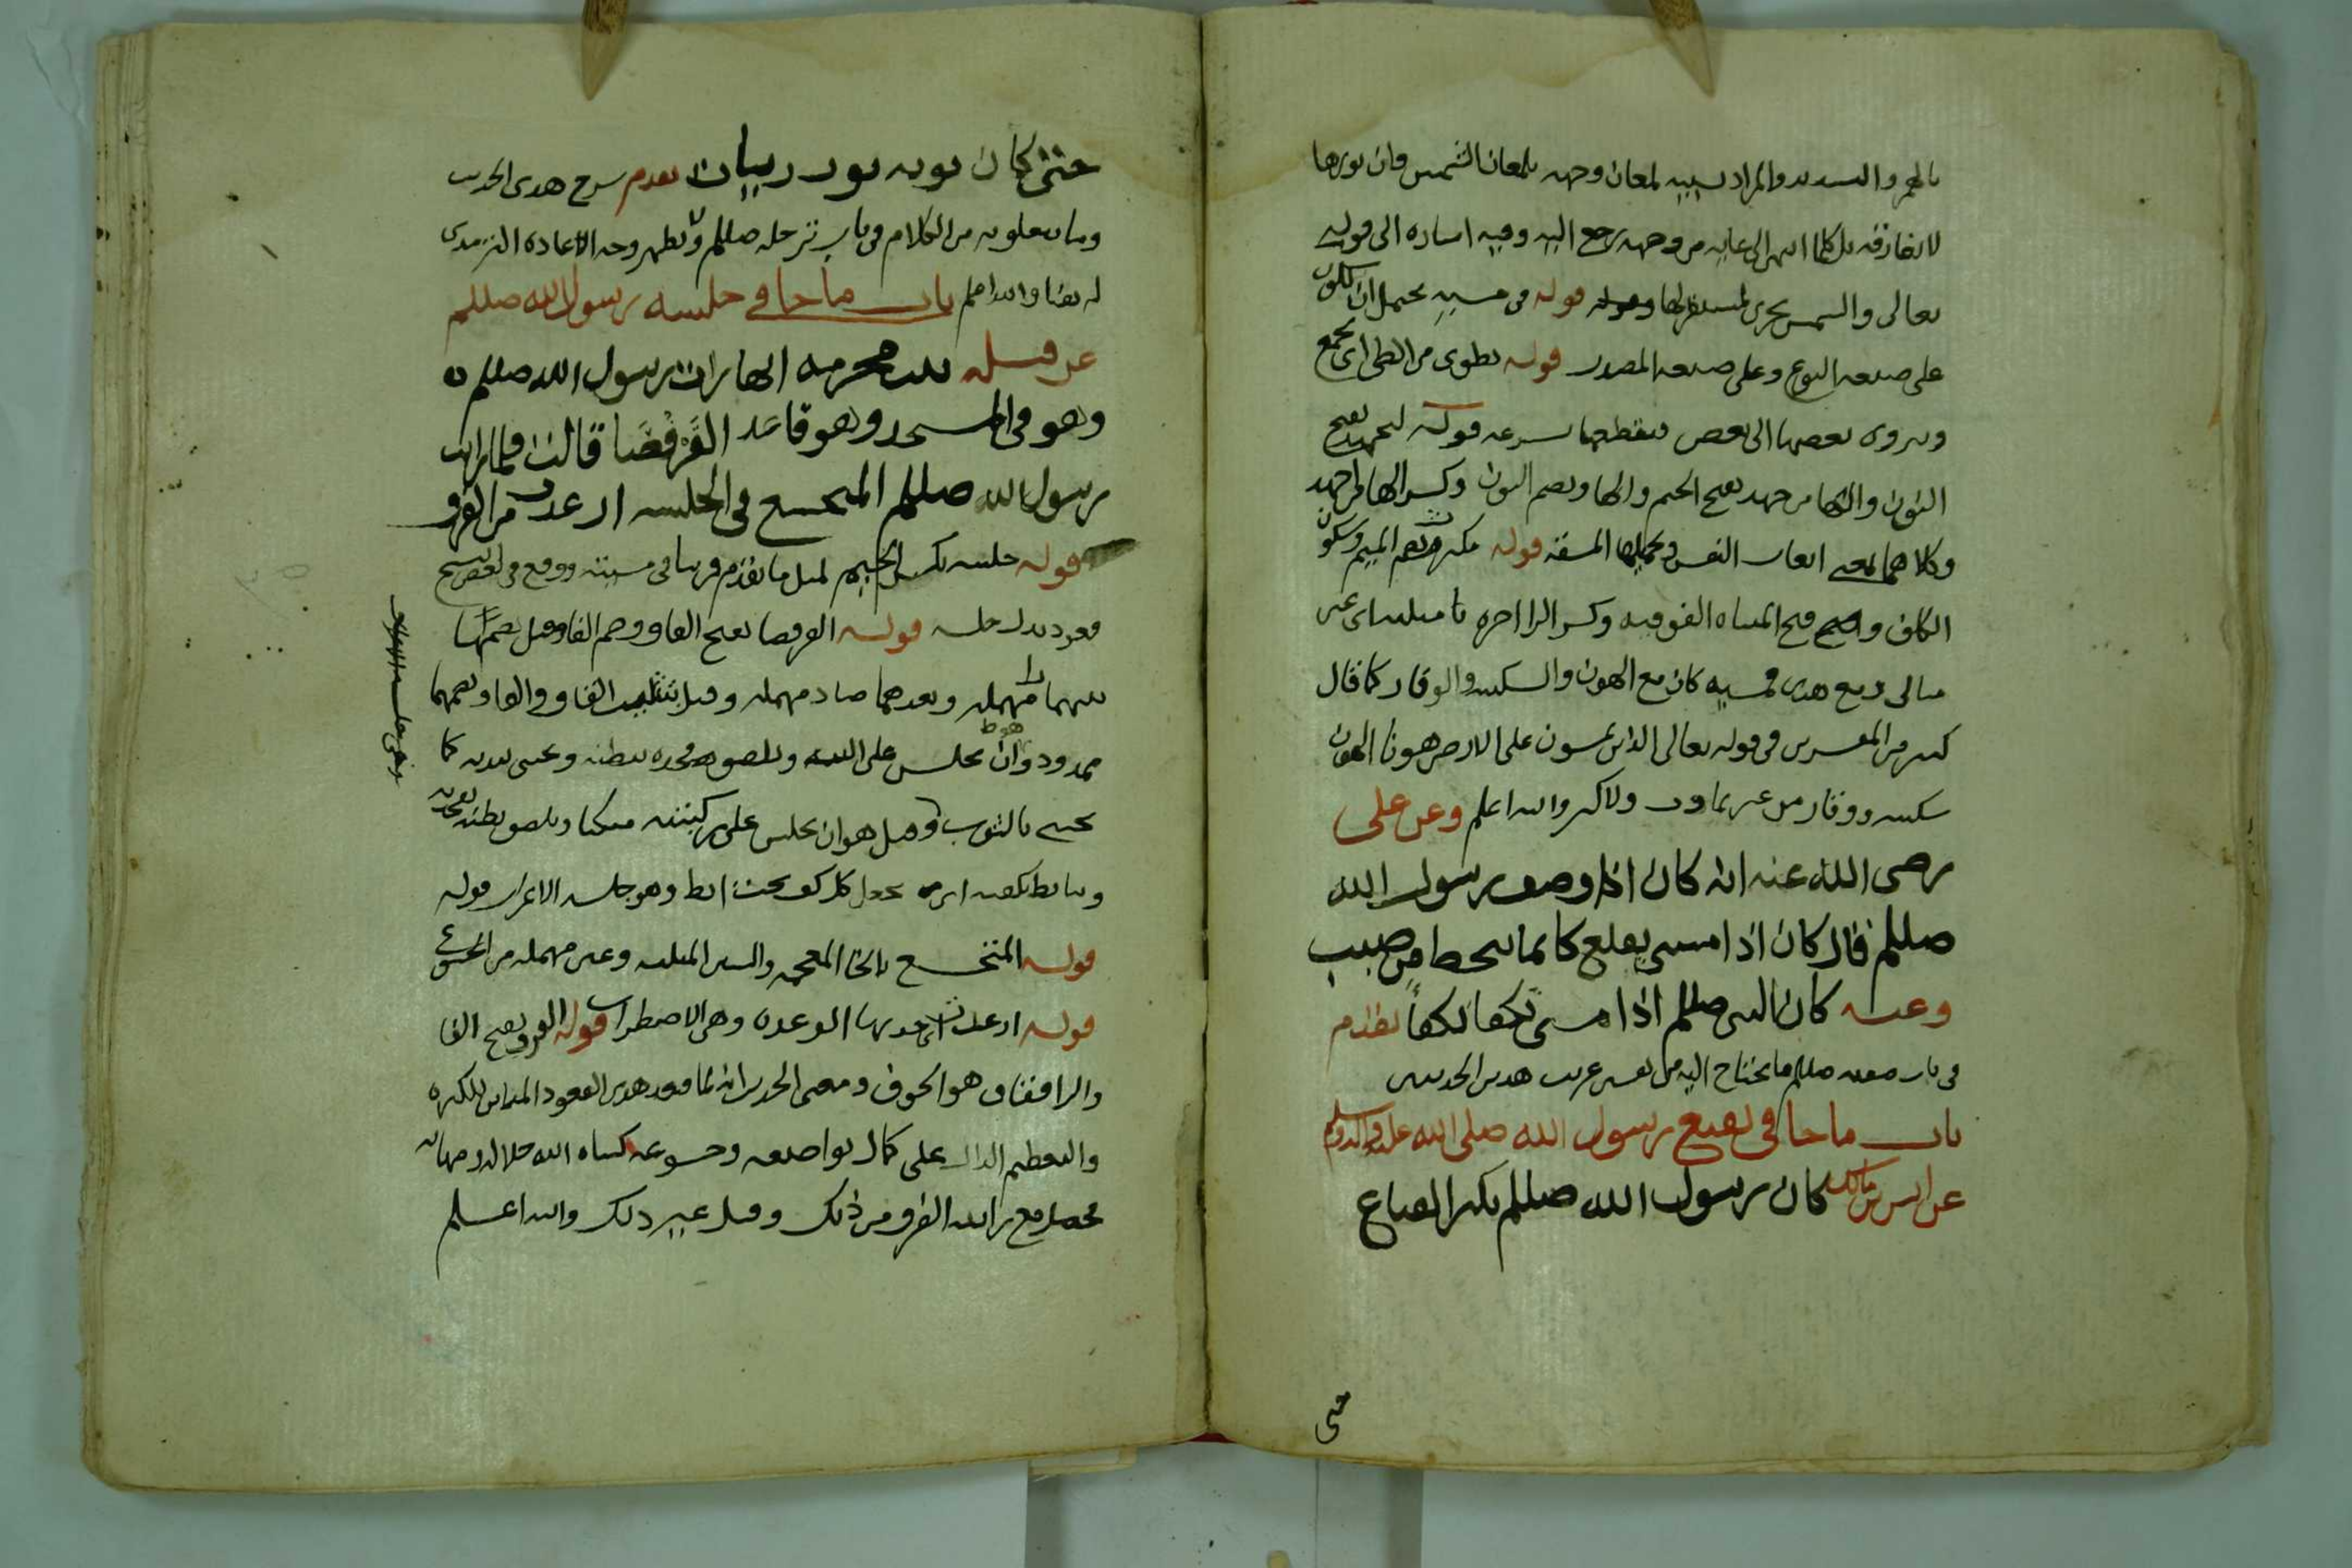 بالهمز والتشديد والمراد تشبيه لمعان وجهه بلمعان الشمس وان نورها
لا يفارقه بل كلما انتهى الى غايه من وجهه رجع اليه وفيه اشاره الى قوله
تعالى والشمس تجري لمستقر لها قوله في مشيه يحتمل ان يكون
على صيغه النوع وعلى صيغه المصدر قوله تطوى من الطي اى تجمع
ويزوى بعضها الى بعض فيقطعها بسرعه قوله لنجهد بفتح
النون والها من جهد بفتح الجيم والها وبضم النون وكسر الها من اجهد
وكلاهما بمعنى اتعاب النفس وتحميلها المشقه قوله مكترث بضم الميم وسكون
الكاف وفتح المثناه الفوقيه وكسر الرا اخره ثا مثلثه اى غير
مبالى ومع هدى مشيه كان مع الهون والسكينه والوقار كما قال
كثير من المفسرين في قوله تعالى الذين يمشون على الارض هونا الهون
سكينه ووقار من غير تماوت ولا كبر والله اعلم وعن على
رضى الله عنه انه كان اذا وصف رسول الله
صللم قال كان اذا مشى يقلع كانما ينحط من صبب
وعنه كان النبى صللم اذا مشى تكفا تكفأ تقدم
فى باب صفته صللم ما يحتاج اليه من تفسير غريب هدين الحديثين
باب ما جا في تقنع رسول الله صلى الله عليه واله وسلم
عن انس بن مالك كان رسول الله صللم يكثر القناع
حتى
حتى كان ثوبه ثوب زيات تقدم شرح هدى الحديث
وما يتعلق به من الكلام في باب ترجله صللم ولا يظهر وجه لاعاده الترمدى
له هنا والله اعلم باب ما جا في جلسه رسول الله صللم
عن قيله بنت مخرمه انها رات رسول الله صللم
وهو في المسجد وهو قاعد القرفصا قالت فلما رايت
رسول الله صللم المتخشع في الجلسه ارعدت من الفرق
قوله جلسه بكسر الجيم لمثل ما تقدم قريبا في مشيته ووقع في بعض نسخ
قعود بدل جلسه قوله القرفصا بضم القاف وضم الفا وقيل بضمها
بينهما را مهمله وبعدهما صاد مهمله وقيل بتثليث القاف والفا وبضمهما
ممدود وهو ان يجلس على اليتيه ويلصق فخذه ببطنه ويحتبى بيديه كما
يحتبى بالثوب وقيل هو ان يجلس على ركبتيه متكئا ويلصق بطنه بفخذيه
ويتابط بكفيه اى يجعل كل كف تحت ابط وهو جلسه الاعراب قوله
قوله المتخشع بالخا المعجمه والشين المثلثه وعين مهمله من الخشوع
قوله ارعدت اى اخذتها الرعده وهى الاضطراب قوله الفرق بفتح الفا
والرا فقاف هو الخوف ومعنى الحديث انه لما قعد هدى القعود المباين للكبره
والتعظيم الدال على كمال تواضعه وخشوعه كساه الله جلالا ومهابه
فحصل مع رايته الفرق من ذلك وقيل غير ذلك والله اعلم